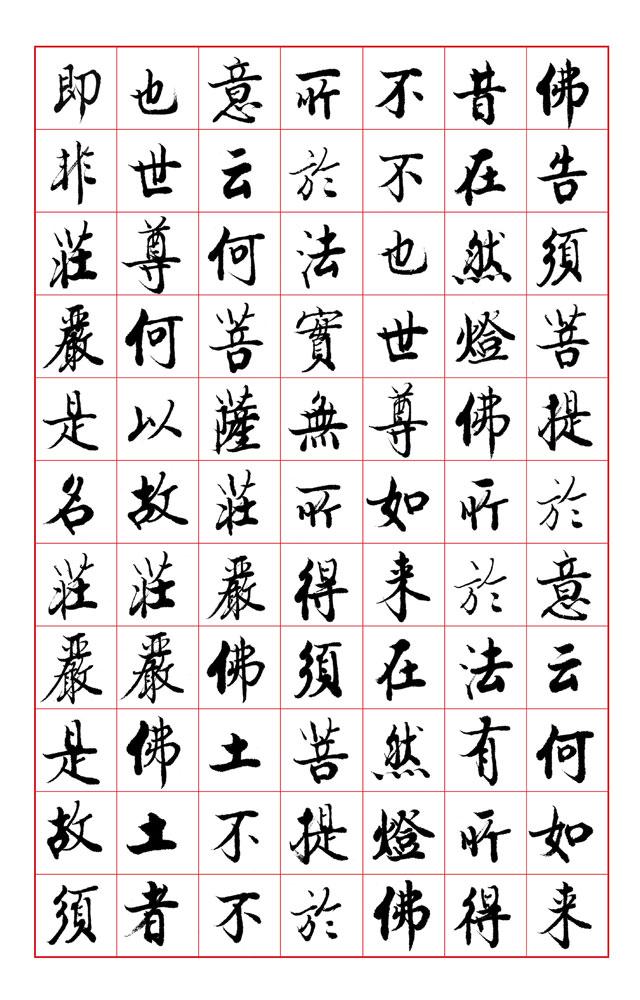 佛告須菩提於意云何如来
昔在然燈佛所於法有所得
不不也世尊如来在然燈佛
所於法實無所得須菩提於
意云何菩薩莊嚴佛土不不
也世尊何以故莊嚴佛土者
即非莊嚴是名莊嚴是故須